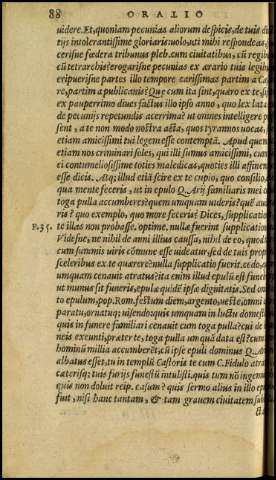 88 ORATIO
uidere. Et, quoniam pecunias aliorum despicis, de tuis di
tijs intolerantissime gloriaris: uolo, uti mihi respondeas,
cerisne foedera tribunus pleb. cum ciuitatibus, cũ regibus
cũ tetrarchis? erogarisne pecunias ex ærario tuis legibus
eripuerisne partes illo tempore carissimas partim a Cæ
re, partim a publicanis? Quæ cum ita sint, quæro ex te, sis
ex pauperrimo diues factus illo ipso anno, quo lex lata
de pecunijs repetundis acerrima? ut omnes intelligere
sent, a te non modo nostra acta, quos tyrannos uocas,
etiam amicissimi tui legem esse contemptã. Apud quem
etiam nos criminari soles, qui illi sumus amicissimi, cum
ei contumeliosissime toties maledicas, quoties illi affinem
esse dicis. Atq; illud etiã scire ex te cupio, quo consilio
qua mente feceris, ut in epulo Q. Arij familiaris mei
toga pulla accumberes? quem umquam uideris? que au
ris? quo exemplo, quo more feceris? Dices, supplicatio
P.35. te illas non probasse. optime. nullæ fuerint supplication
Videsne, ne nihil de anni illius caussa, nihil de eo, quod
cum summis uiris cõmune esse uideatur, sed de tuis propr
sceleribus ex te quærere? nulla supplicatio fuerit. cedo,
umquam cenauit atratus? ita enim illud epulũ est funeb
ut munus sit funeris, epulæ quidẽ ipsæ dignitatis. Sed
to epulum, pop. Rom. festum diem, argento, ueste, omni
paratu, ornatuq; uisendo: quis umquam in luctu domest
quis in funere familiari cenauit cum toga pulla? cui de
neis exeunti, præter te, toga pulla umquã data est? cum
hominũ millia accumberẽt, cũ ipse epuli dominus Q.
albatus esset, tu in templũ Castoris te cum C. Fidulo atra
cæterisq; tuis furijs funestũ intulisti. quis tum nõ ingem
quis non doluit reip. casum? quis sermo alius in illo ep
fuit, nisi hanc tantam, & tam grauem ciuitatem